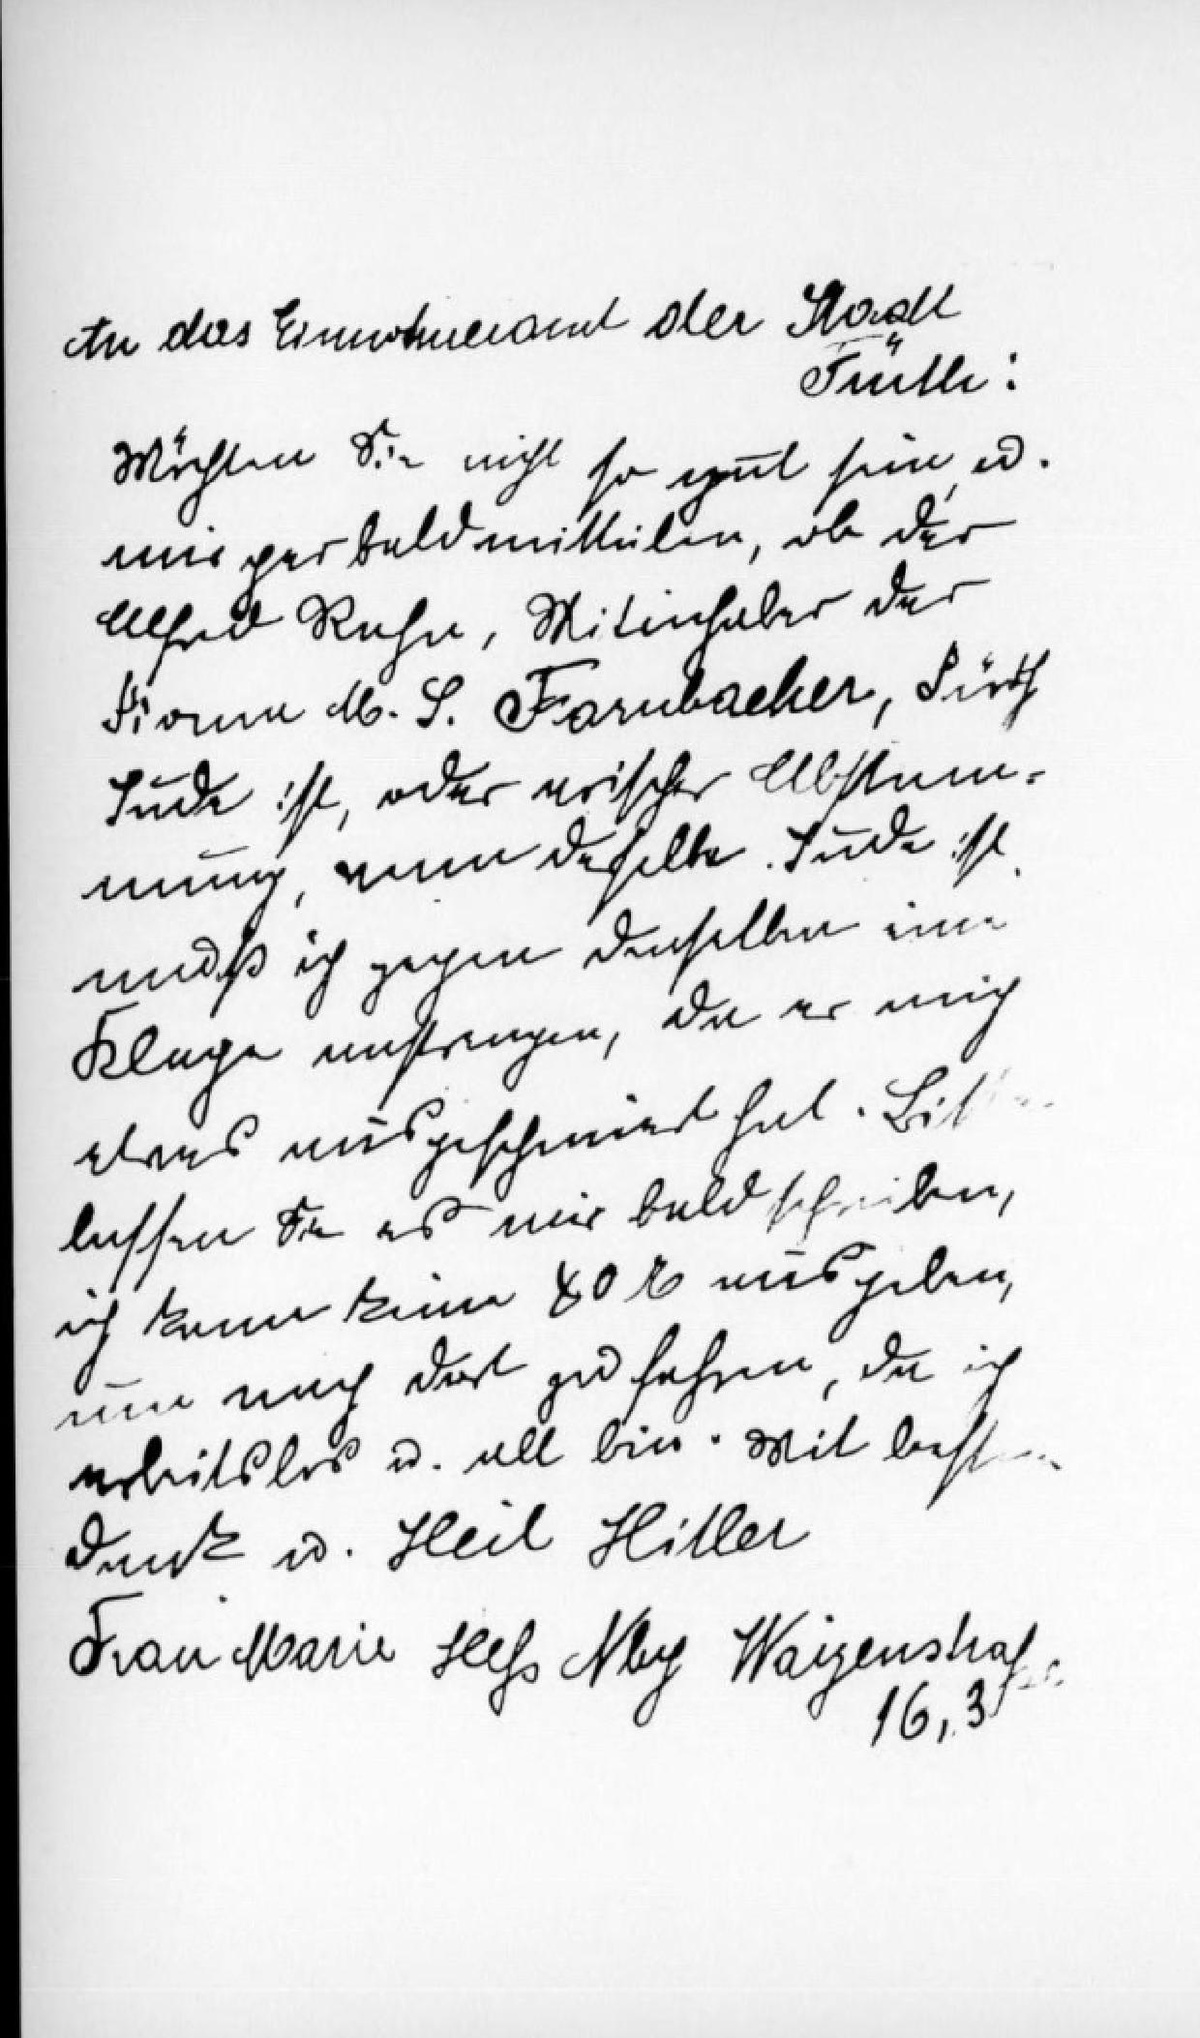 An das Einwohneramt der Stadt
Fürth:
Möchten Sie nicht so gut sein u.
mir gar bald mitteilen, ob der
Alfred Ruhn, Mitinhaber der
Firma M. S. Farnbacher, Fürth
Jude ist, oder arischer Abstam-
mung, wenn derselbe Jude ist,
muß ich gegen denselben eine
Klage anstrengen, da er mich
etwas ausgeschmiert hat. Bitte
lassen Sie es mir bald schreiben,
ich kann keine 80 ausgeben,
um nach dort zu fahren, da ich
arbeitslos u. alt bin. Mit besten
Dank u. Heil Hitler
Frau Marie Heß Nbg Waizenstraße
16, 3